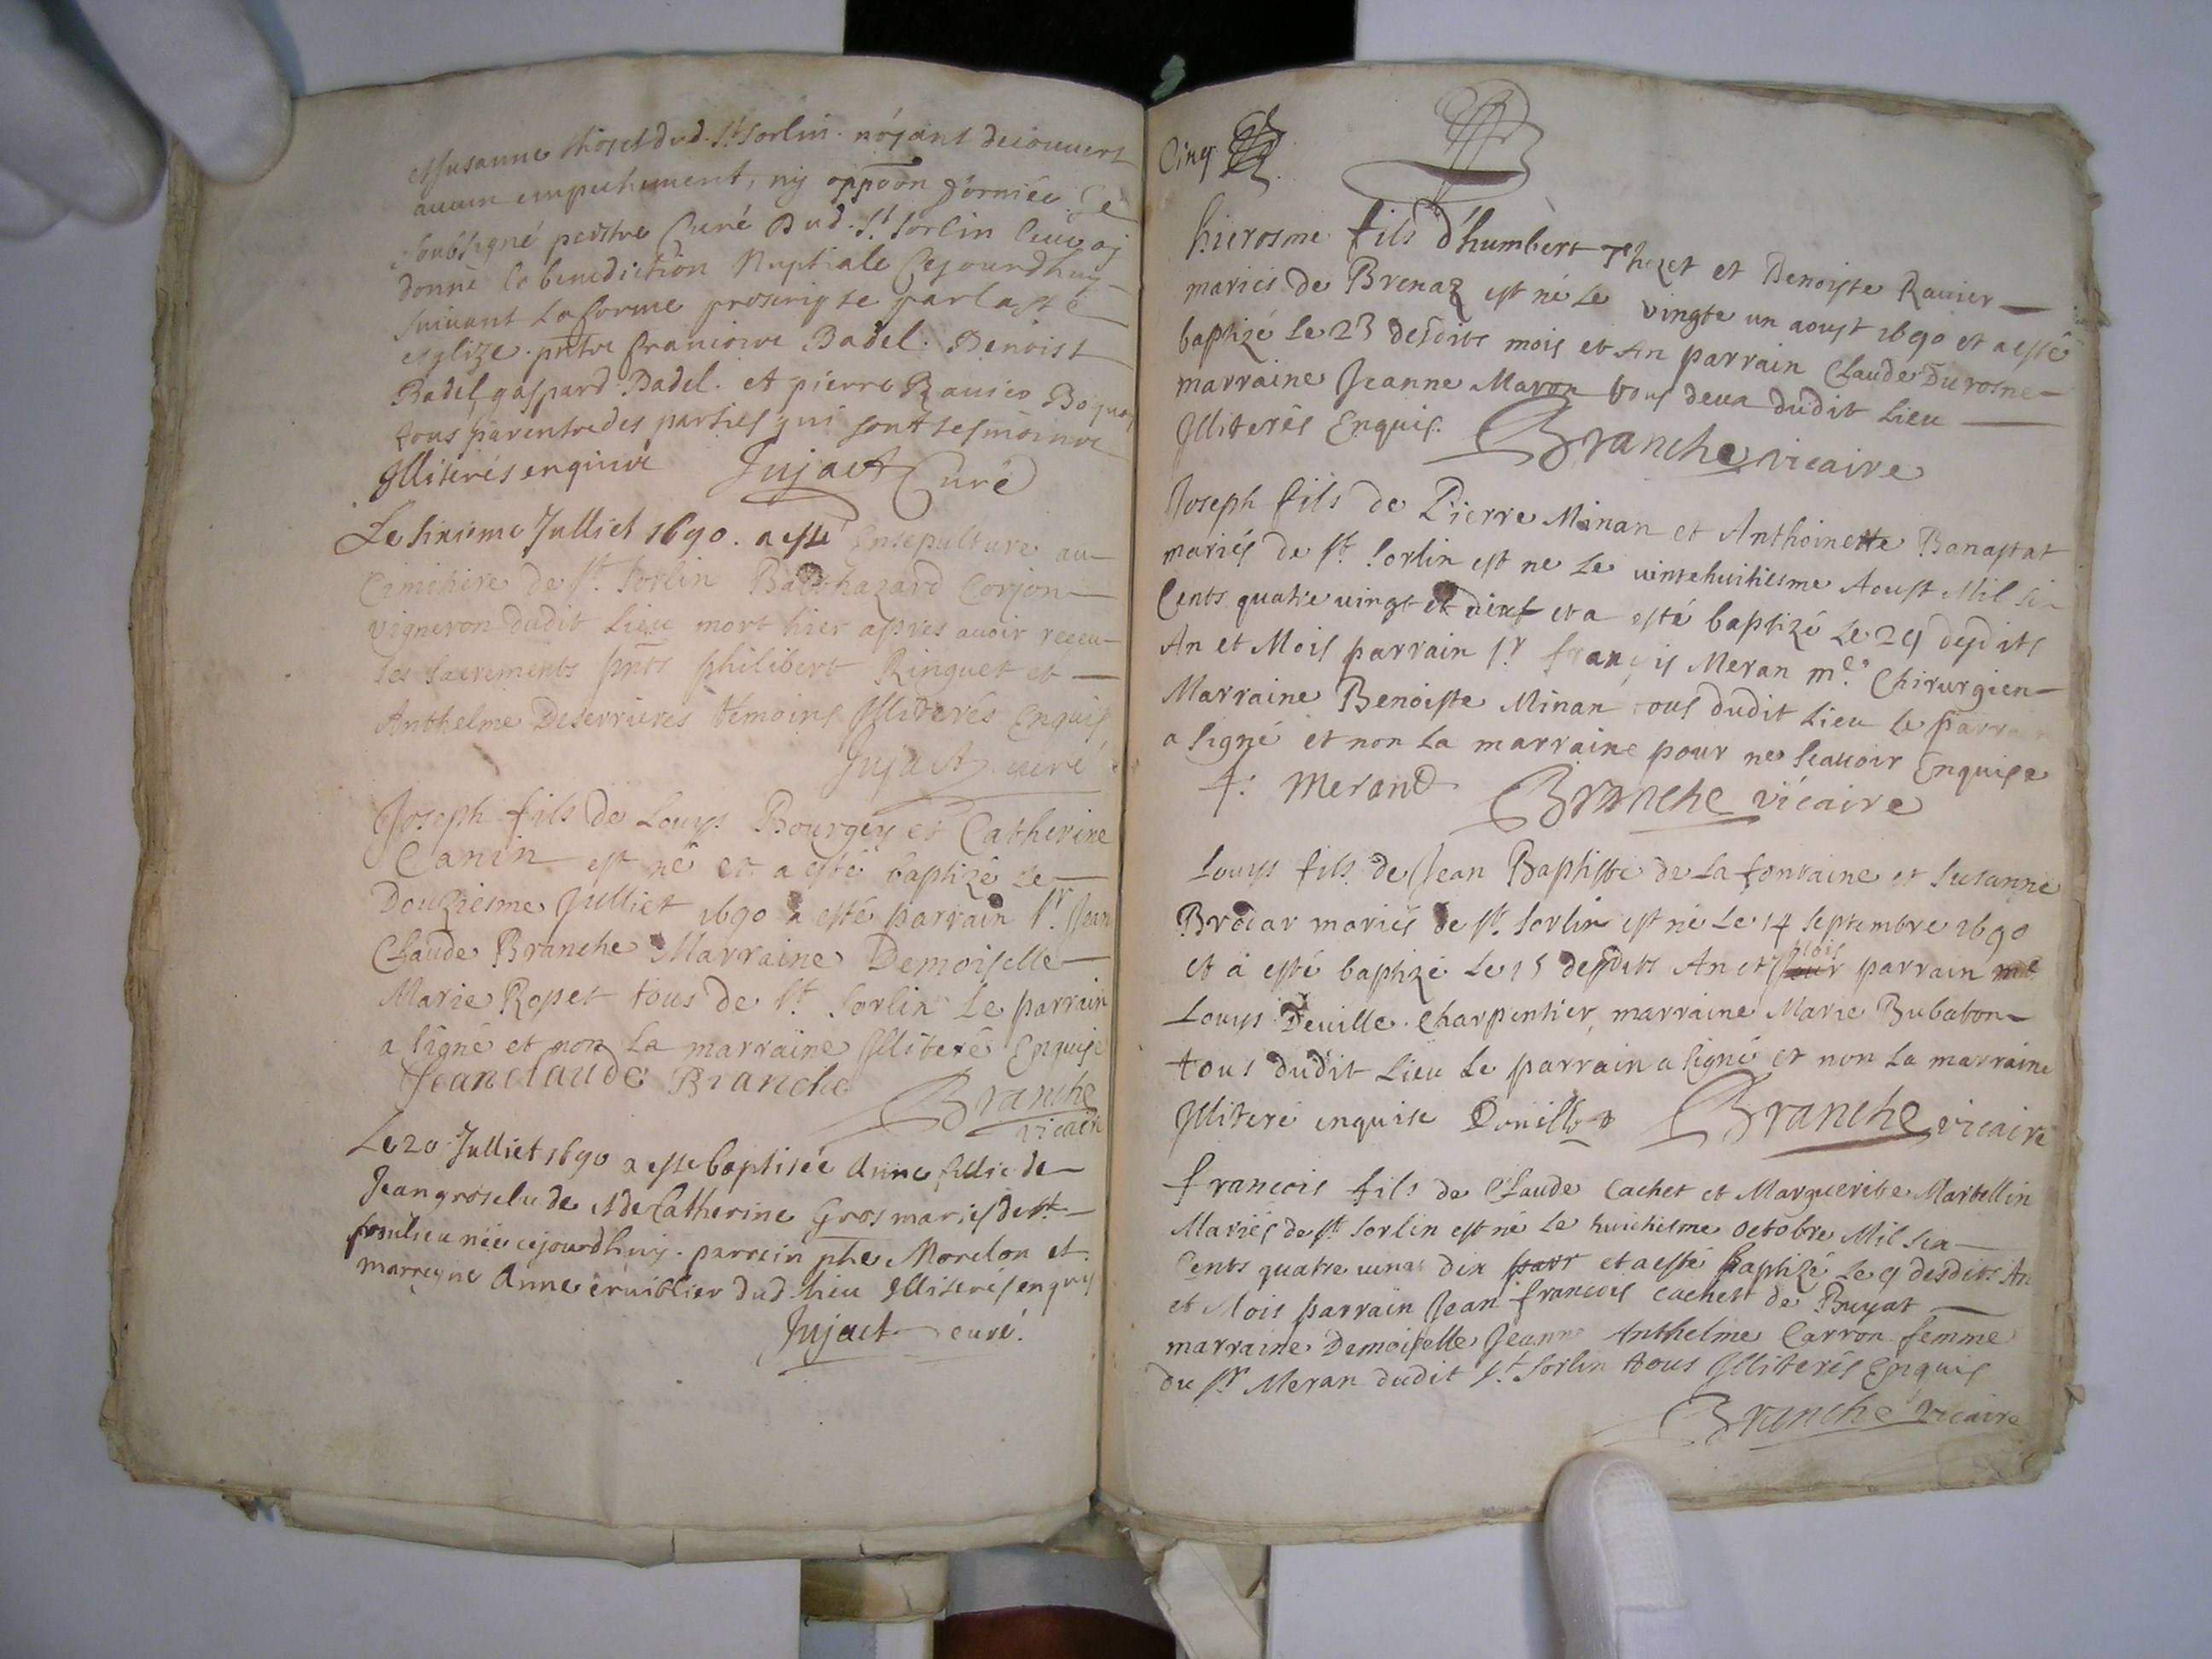 et Susanne thoset dud. St Sorlin. n'ayant decouvert
aucun empechement, ny oppoon formée. Je
soubsigné prestre Curé dud. St Sorlin leur ay
donné la benediction Nuptiale Cejourdhuy
suivant la forme prescripte par la ste
esglize. pntz Badel. Benoist
Badel, gaspard Badel. et pierre Ravier
tous parents des parties qui sont tesmoins
Illiterés enquis Jujact Curé
Le sixieme Julliet 1690. a esté Ensepulturé au
Cimetiere de St. Sorlin Balthazard Corjon
vigneron dudit Lieu mort hier apres avoir receu
les sacrements pnts philibert Ringuet et
Anthelme Deserrieres témoins Illiterés Enquis
Jujact curé
Joseph fils de Louys Bourgey et Catherine
Canin est né et a esté baptizé le
Douziesme Julliet 1690 a esté parrain Sr. Jean
Claude Branche Marraine Demoiselle
Marie Ropet tous de St. Sorlin Le parrain
a signé et non La marraine Illiteré Enquise
Jeanclaude Branche Branche
vicaire
Le 20 Julliet 1690 a esse baptisée Anne fillie de
Jean groselu de et de Catherine Gros maries de St
née cejourdhuy. parrein phe Morelon et
marreyne Anne dud lieu Illiterés enquis
Jujact curé.
Cinq
hierosme fils d'humbert Thozet et Benoiste Ravier
mariés de Brenaz est né Le vingte un aoust 1690 et a esté
baptizé Le 23 desdits mois et An parrain Claude Durosne
marraine Jeanne Maron tous deux dudit Lieu
Illiterés Enquis. Branche vicaire
Joseph fils de Pierre Minan et Anthoinette Banastat
mariés de St. Sorlin est ne Le vintehuitiesme Aoust Mil six
Cents quatre vingt et dix et a esté baptizé Le 29 desdits
An et Mois parrain Sr françis Meran me. Chirurgien
Marraine Benoiste Minan tous dudit Lieu Le parrain
a signé et non La marraine pour ne scavoir Enquise
f: Merand Branche vicaire
Louys fils de Jean Baptiste de La fontaine et Susanne
Brocar mariés de St. Sorlin est né Le 14 Septembre 1690
et a esté baptizé Le 15 desdits An et mois parrain me
Louys Deville Charpentier, marraine Marie Bubaton
tous dudit Lieu Le parrain a signé et non La marraine
Illiteré enquise Branche vicaire
francois fils de Claude Cachet et Marguerite Martellin
Mariés de St. Sorlin est né Le huictiesme Octobre Mil six
Cents quatre vingt dix et a esté baptizé Le 9 desdits An
et Mois parrain Jean francois Cachet de Buyat
marraine Demoiselle Jeanne Anthelme Carron femme
du Sr Meran dudit St. Sorlin tous Illiterés Enquis
Branche vicaire